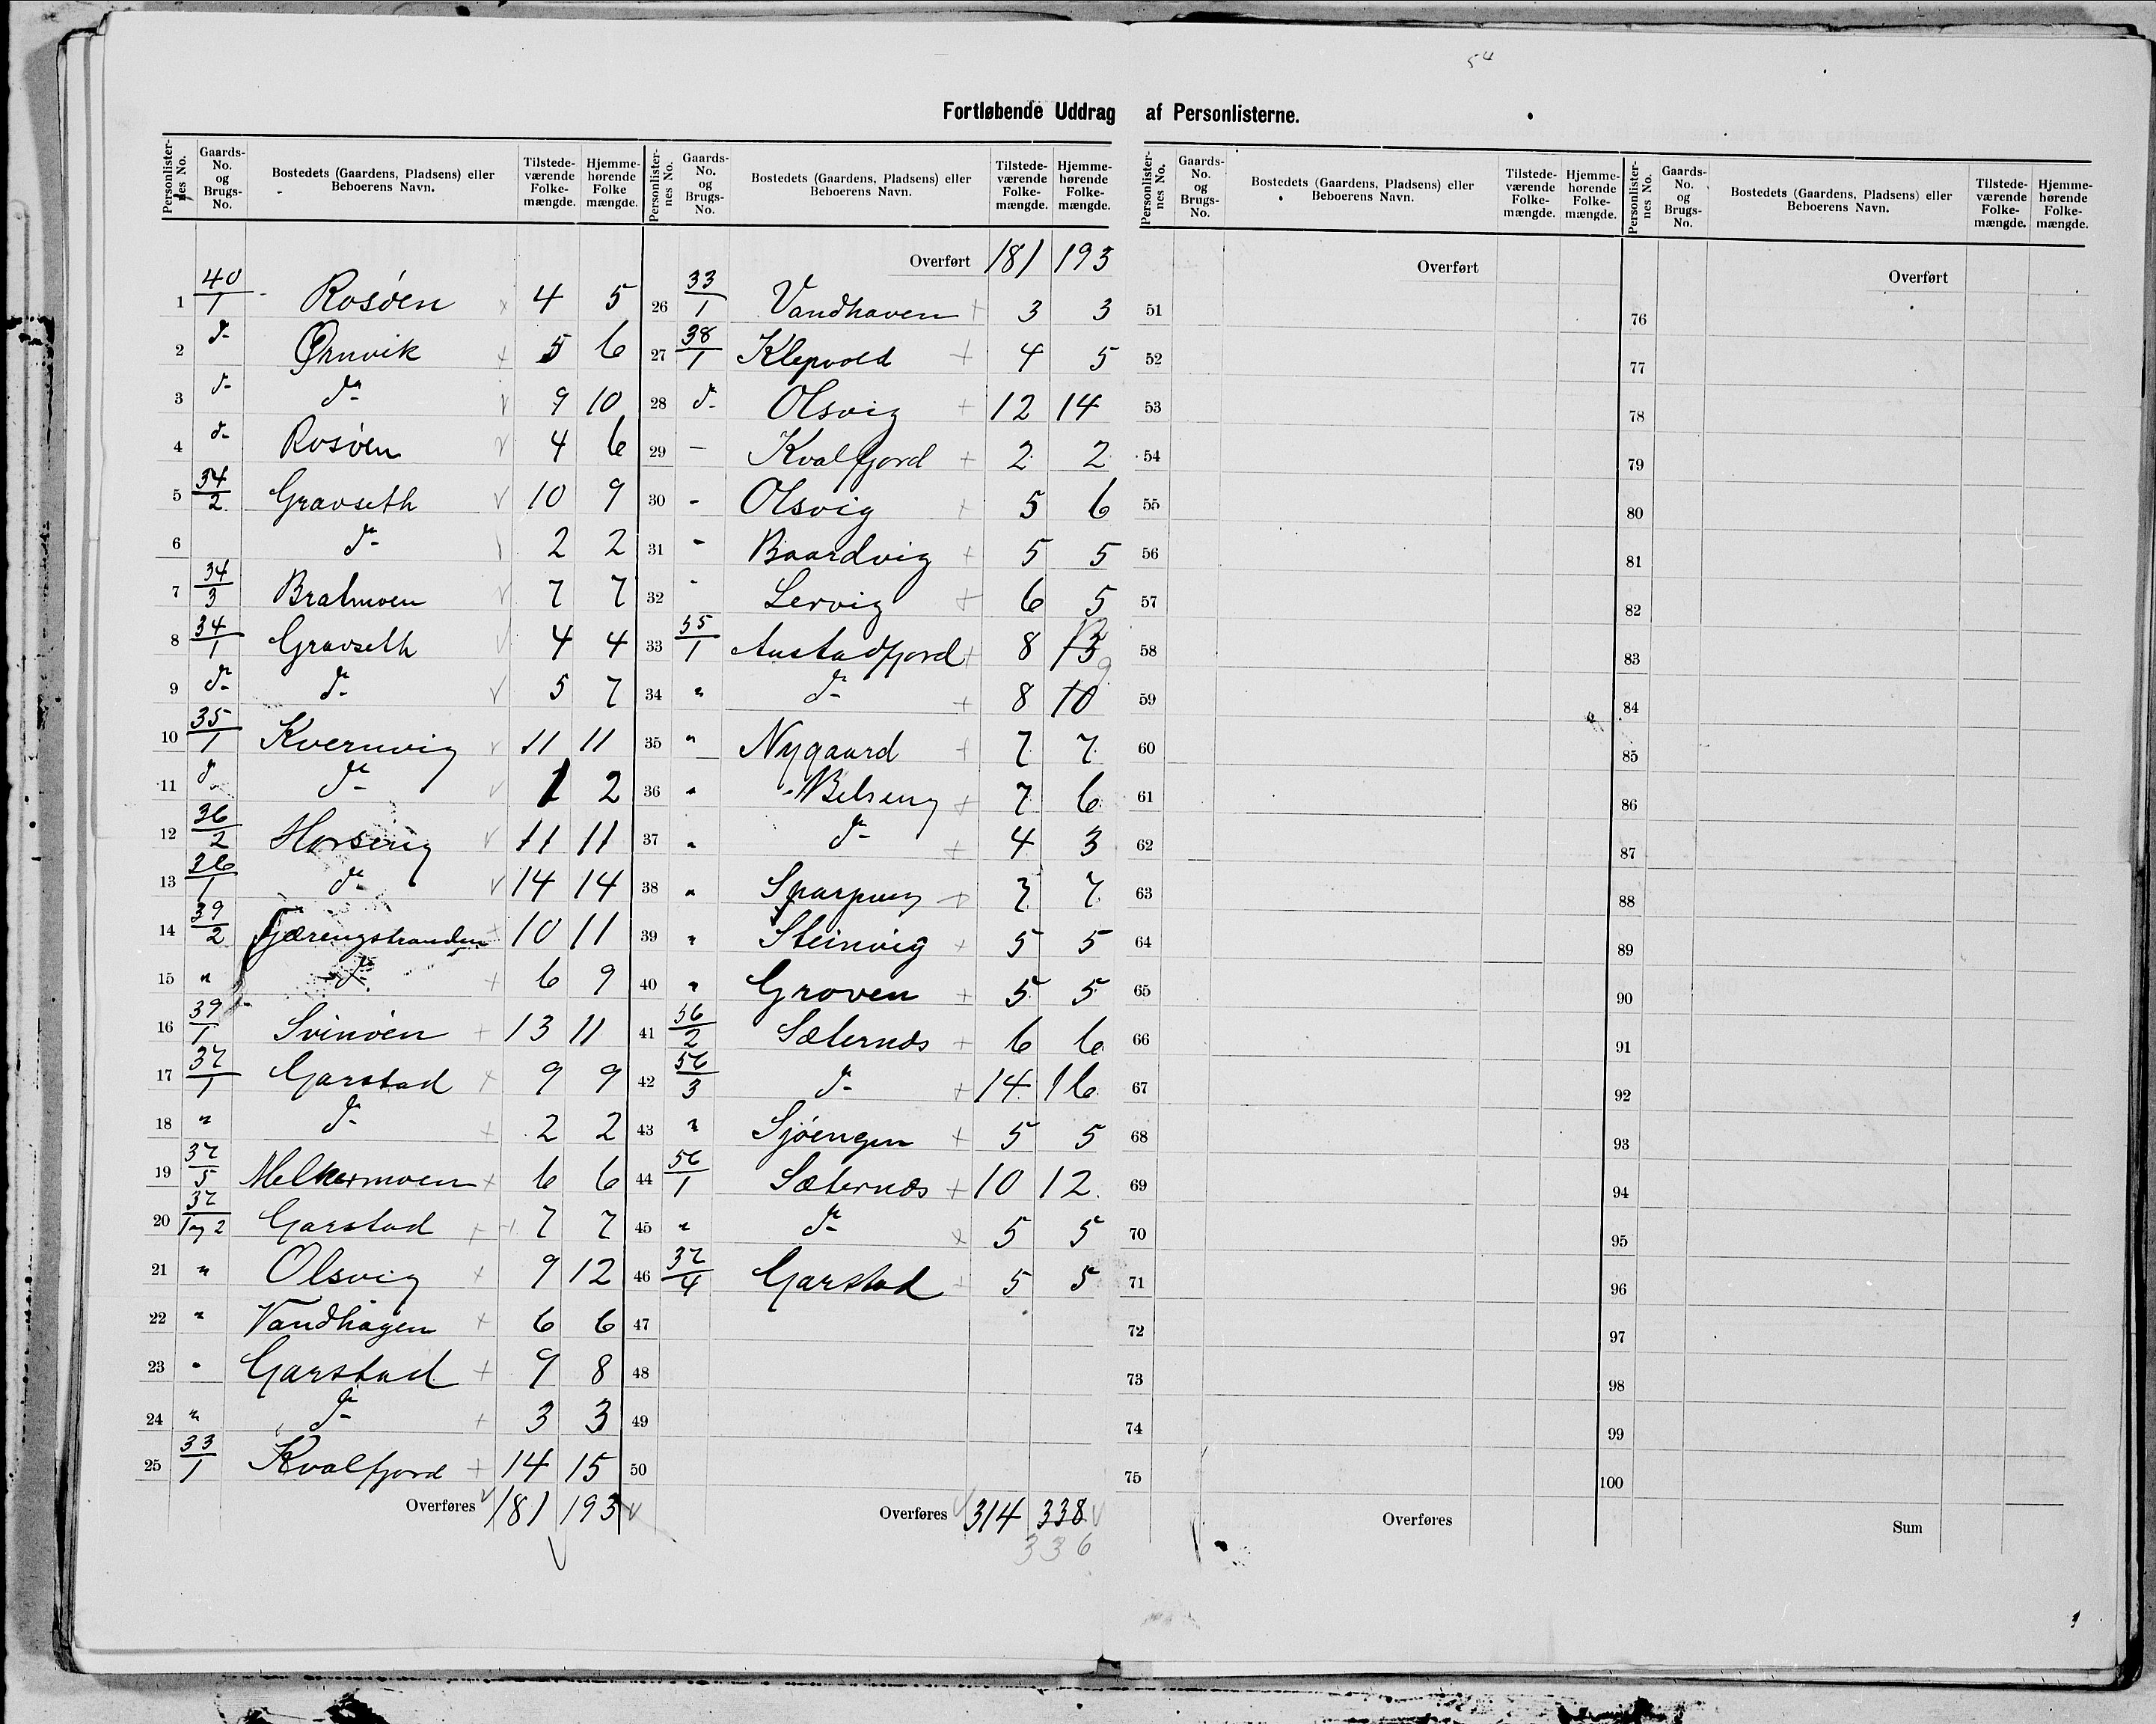 54
Fortløbende Uddrag af Personlisterne.
Personlister-nes No. | Gaards-No. og Brugs-No. | Bostedets (Gaardens, Pladsens) eller Beboerens Navn. | Tilstede-værende Folke-mængde. | Hjemme-hørende Folke mængde.
1 40/1 Rosøen 4 5
2 do Ørnvik 5 6
3 do do 9 10
4 do Rosøen 4 6
5 34/2 Gravseth 10 9
6 do 2 2
7 34/3 Bratmoen 7 7
8 34/1 Gravseth 4 4
9 do do 5 7
10 35/1 Kvernvig 11 11
11 do do 1 2
12 36/2 Horseng 11 11
13 36/1 do 14 14
14 39/2 Gjærengstranden 10 11
15 " do 6 9
16 39/1 Svinøen 13 11
17 37/1 Garstad 9 9
18 " do 2 2
19 37/5 Melkermoen 6 6
20 37/1 og 2 Garstad 7 7
21 " Olsvig 9 12
22 " Vandhagen 6 6
23 " Garstad 9 8
24 " do 3 3
25 33/1 Kvalfjord 14 15
Overføres 181 193
Personlister-nes No. | Gaards-No. og Brugs-No. | Bostedets (Gaardens, Pladsens) eller Beboerens Navn. | Tilstede-værende Folke-mængde. | Hjemme-hørende Folke-mængde.
Overført 181 193
26 33/1 Vandhaven 3 3
27 38/1 Klepvold 4 5
28 do Olsvig 12 14
29 - Kvalfjord 2 2
30 - Olsvig 5 6
31 - Baardvig 5 5
32 - Lervig 6 5
33 55/1 Austadfjord 8 13
34 " do 8 10 9
35 " Nygaard 7 7
36 " Belseng 7 6
37 " do 4 3
38 " 7 7
39 " Steinvig 5 5
40 " Groven 5 5
41 56/2 Sæternes 6 6
42 56/3 do 14 16
43 " Sjøengen 5 5
44 56/1 Sæternes 10 12
45 " do 5 5
46 37/4 Garstad 5 5
47
48
49
50
Overføres 314 338
336
Personlister-nes No. | Gaards-No. og Brugs-No. | Bostedets (Gaardens, Pladsens) eller Beboerens Navn. | Tilstede-værende Folke-mængde. | Hjemme-hørende Folke-mængde.
Overført
51
52
53
54
55
56
57
58
59
60
61
62
63
64
65
66
67
68
69
70
71
72
73
74
75
Overføres
Personlister-nes No. | Gaards-No. og Brugs-No. | Bostedets (Gaardens, Pladsens) eller Beboerens Navn. | Tilstede-værende Folke-mængde. | Hjemme-hørende Folke-mængde.
Overført
76
77
78
79
80
81
82
83
84
85
86
87
88
89
90
91
92
93
94
95
96
97
98
99
100
Sum